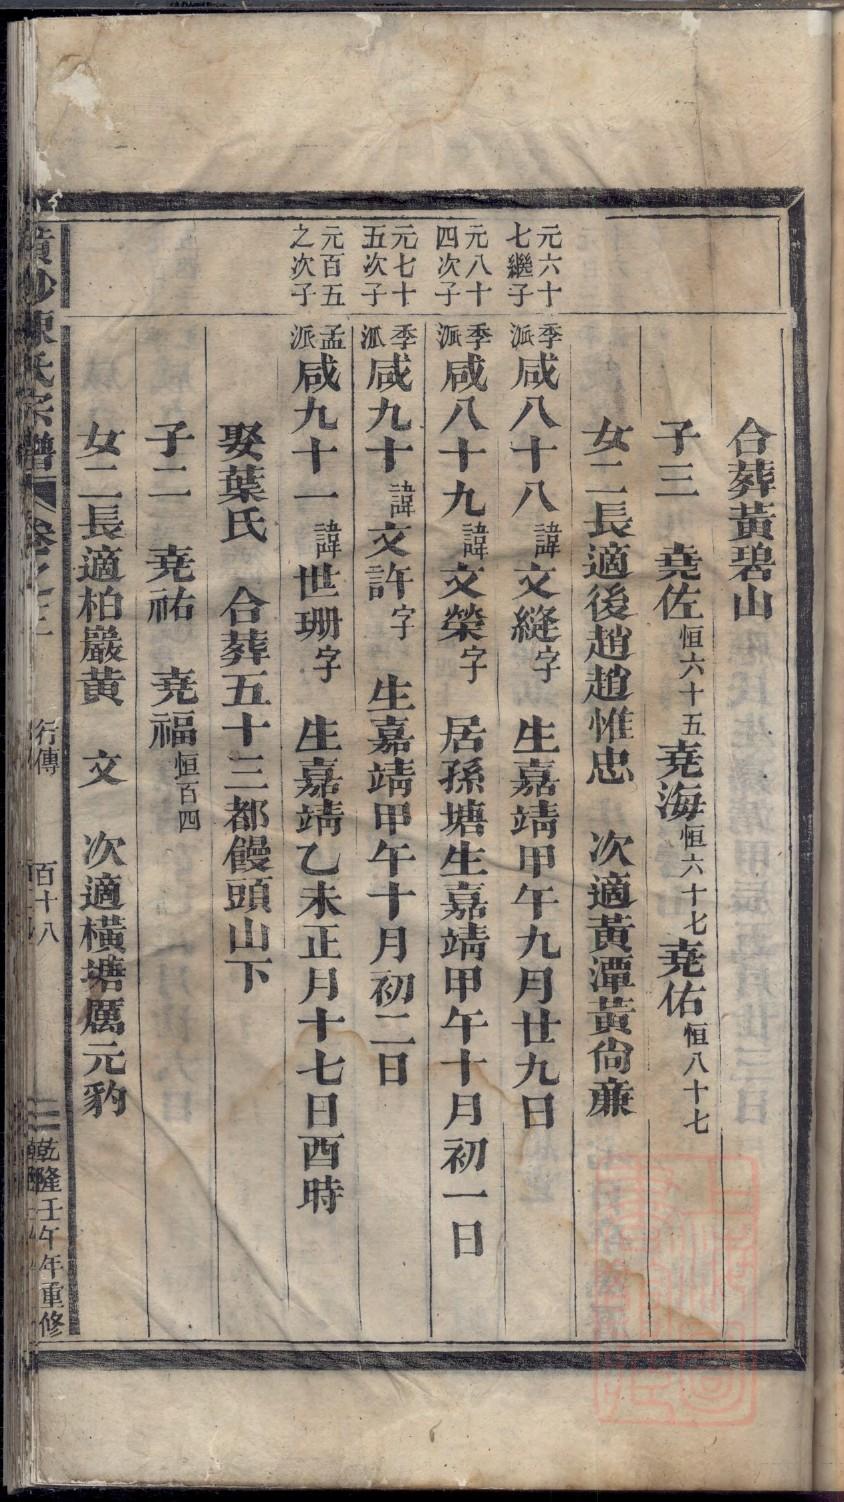 合葬黃碧山
子三 堯佐恒六十五堯海恒六十七堯佑恒八十七
女二長適後趙趙惟忠 次適黃潭黃尙㢘
元六十七繼子
季派咸八十八諱文縫字 生嘉靖甲午九月廿九日
元八十四次子
季派咸八十九諱文榮字 居孫塘生嘉靖甲午十月初一日
元七十五次子
季派咸九十諱文許字 生嘉靖甲午十月初二日
元百五之次子
孟派咸九十一諱世珊字 生嘉靖乙未正月十七日酉時
娶葉氏 合葬五十三都饅頭山下
子二 堯祐 堯福恒百四
女二長適柏巖黃 文 次適橫塘厲元豹
陳氏宗譜 卷之三 行傳 百十八 乾隆壬午年重修